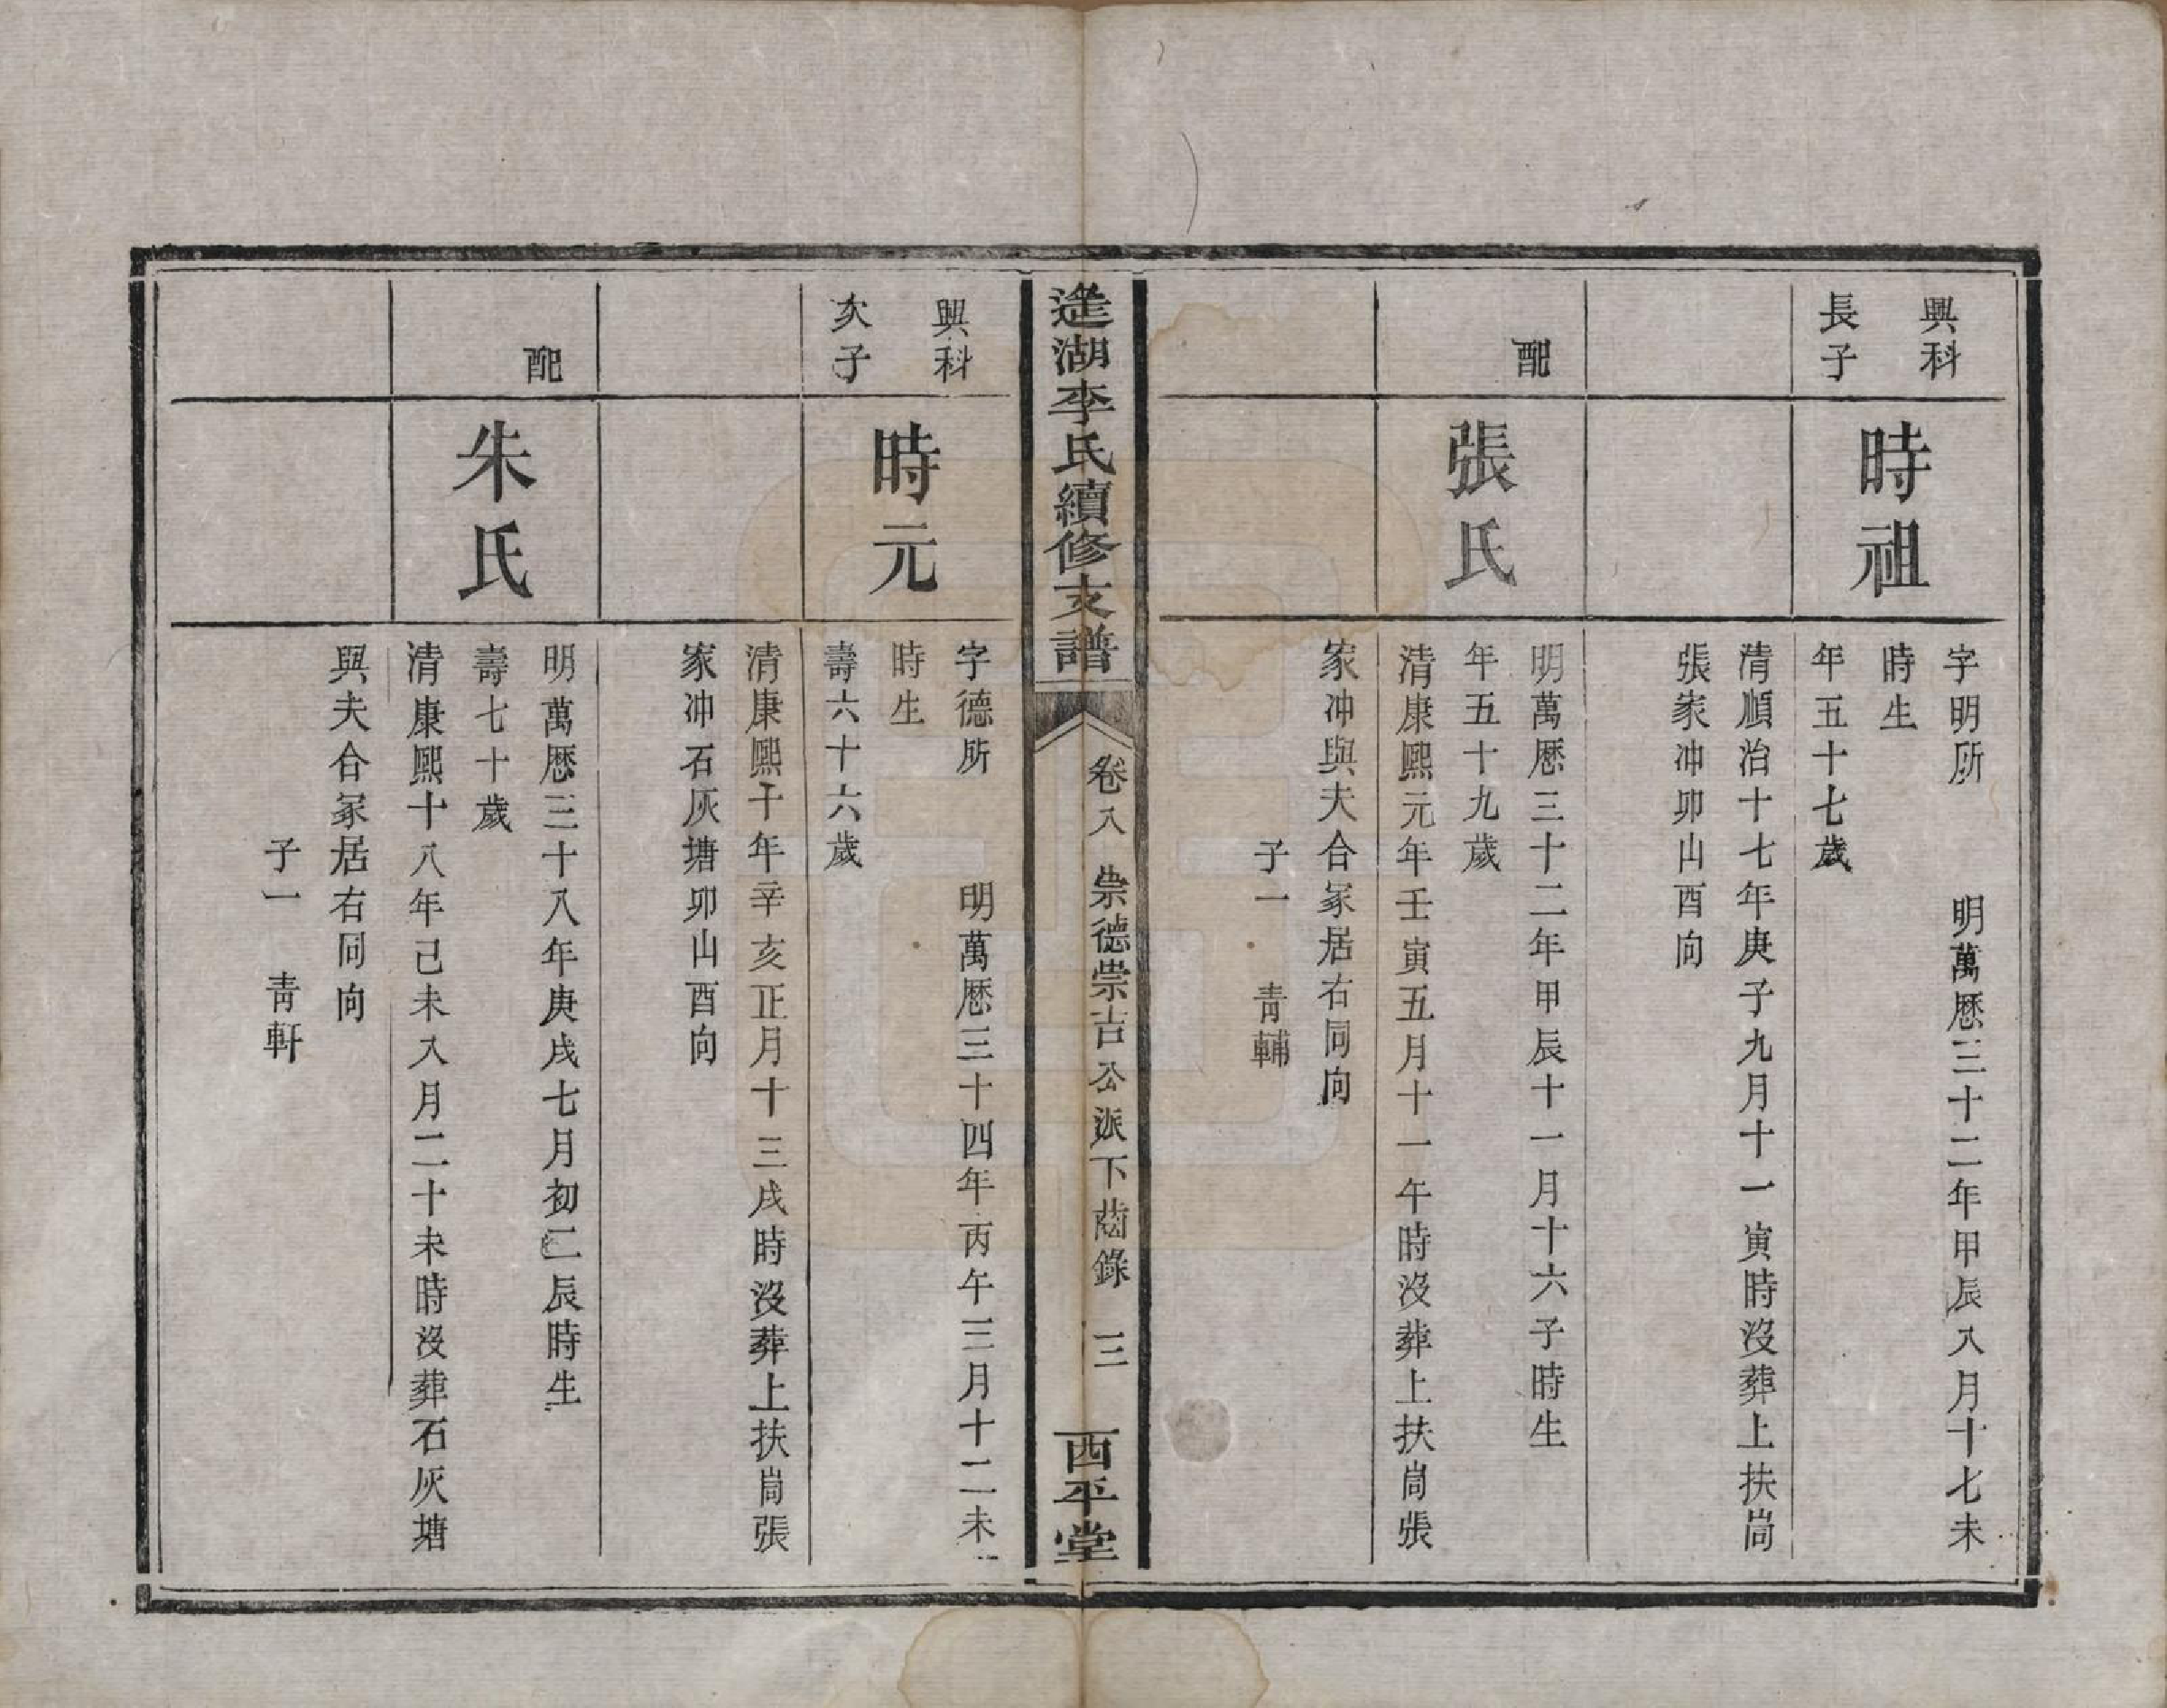 興科
長子
時祖
字明所 明萬歷三十二年甲辰八月十七未
時生
年五十七歲
清順治十七年庚子九月十一寅時沒葬上扶崗
張家冲卯山酉向
配
張氏
明萬歷三十二年甲辰十一月十六子時生
年五十九歲
清康熙元年壬寅五月十一午時沒葬上扶崗張
家冲與夫合冢居右同向
子一 青輔
湖李氏續修支譜
卷八 崇德崇吉公派下齒錄 三
西平堂
興科
次子
時元
字德所 明萬歷三十四年丙午三月十二未
時生
壽六十六歲
清康熙十年辛亥正月十三戌時沒葬上扶崗張
家冲石灰塘卯山酉向
配
朱氏
明萬歷三十八年庚戌七月初二辰時生
壽七十歲
清康熙十八年己未八月二十未時沒葬石灰塘
與夫合冢居右同向
子一 青軒